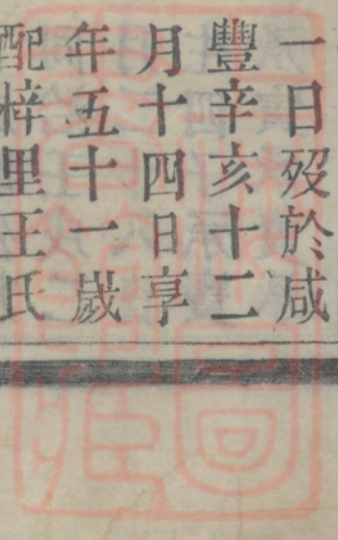 一日歿於咸
豐辛亥十二
月十四日享
年五十一歲
配梓里王氏